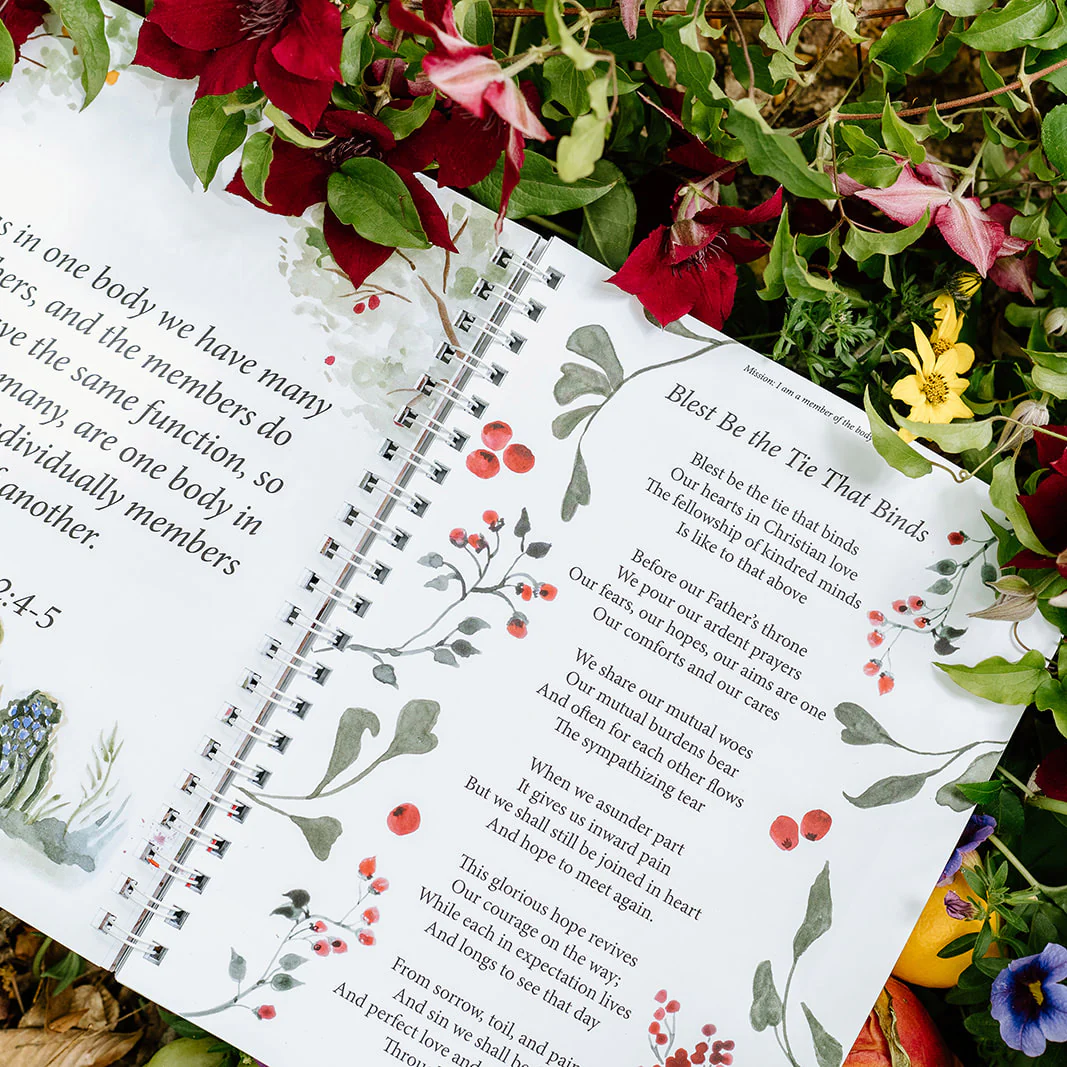 in one body we have many
and the members do
the same function, so
many, are one body in
individually members
another.
2:4-5
Mission: I am a member of the body
Blest Be the Tie That Binds
Blest be the tie that binds
Our hearts in Christian love
The fellowship of kindred minds
Is like to that above
Before our Father's throne
We pour our ardent prayers
Our fears, our hopes, our aims are one
Our comforts and our cares
We share our mutual woes
Our mutual burdens bear
And often for each other flows
The sympathizing tear
When we asunder part
It gives us inward pain
But we shall still be joined in heart
And hope to meet again.
This glorious hope revives
Our courage on the way;
While each in expectation lives
And longs to see that day
From sorrow, toil, and pain
And sin we shall be
And perfect love and